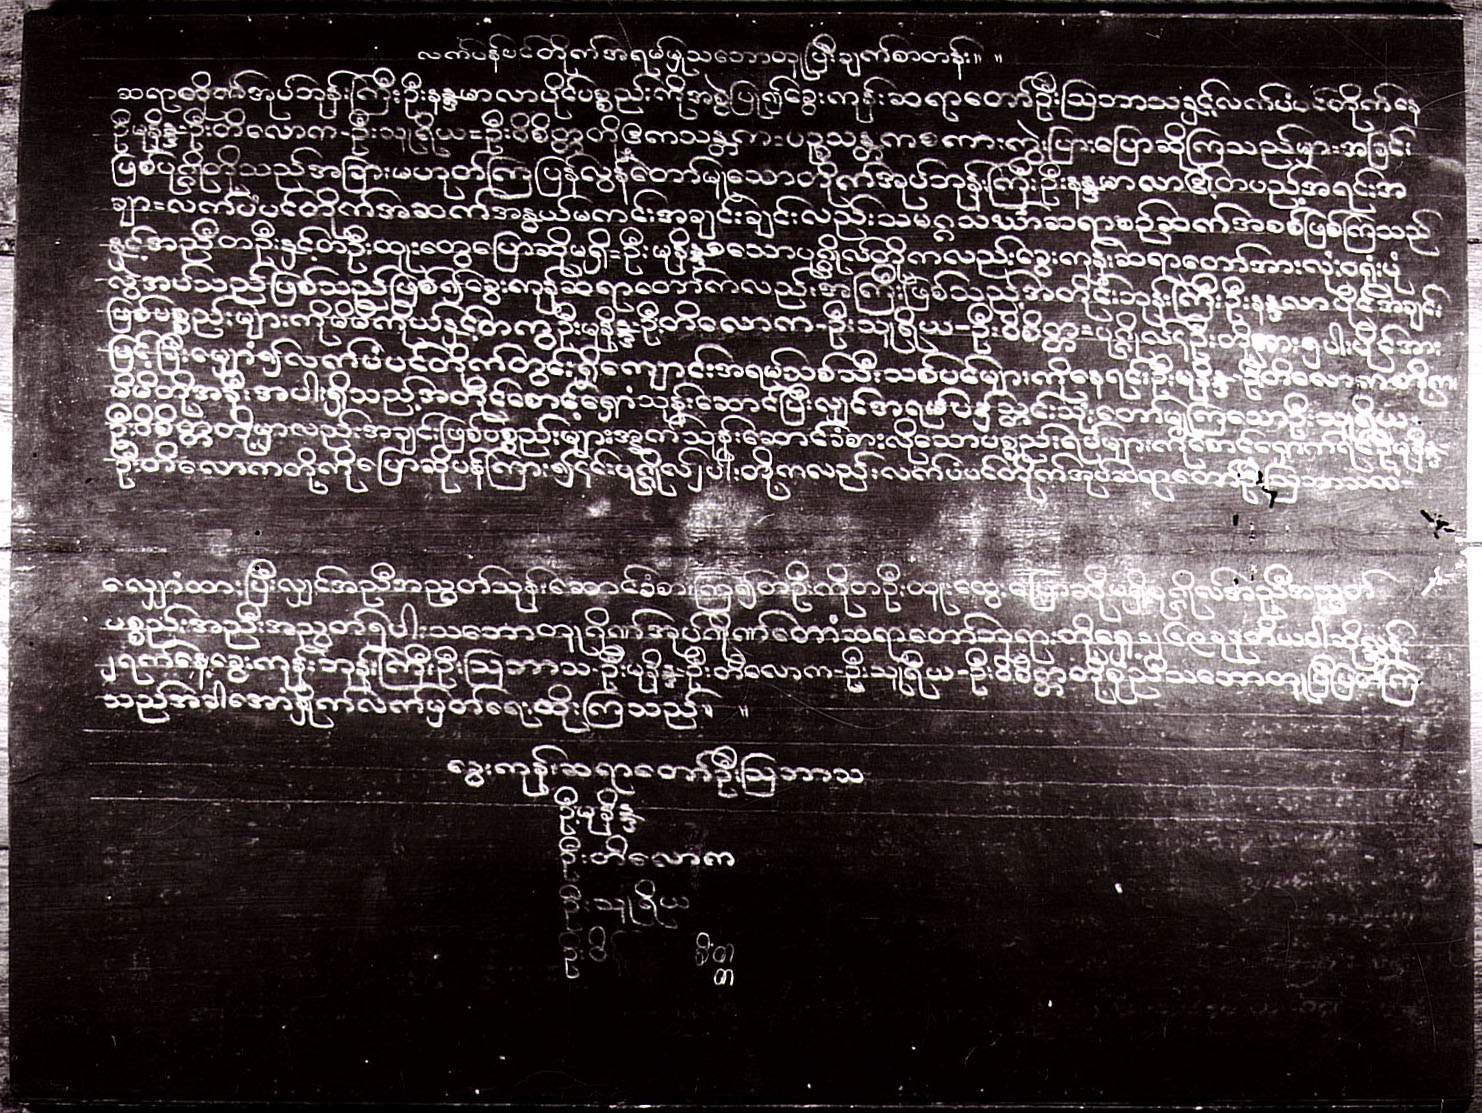 လက်ပံပင်တိုက်အရမ်မှုသဘောတူပြီးချက်စာတန်း။ ။
ဆရာတိုက်အုပ်ဘုန်းကြီးဦးနန္ဒမာလာပိုင်ပစ္စည်းကိုအစွဲပြု၍ခွေးကုန်းဆရာတော်ဦးဩဘာသနှင့်လက်ပံပင်တိုက်နေ
ဦးမုနိန္ဒ-ဦးတိလောက-ဦးသူရိယ=ဦးဝိစိတ္တတို့ စကားကွဲပြားပြောဆိုကြသည်မှာ=အခြင်း
ဖြစ်ပုဂ္ဂိုလ်တို့သည်အခြားမဟုတ်ကြပြန်လွန်တော်မူသောတိုက်အုပ်ဘုန်းကြီးဦးနန္ဒမာလာ၏တပည့်အရင်းအ
ချာ=လက်ပံပင်တိုက်အဆက်အနွယ်မကင်းအချင်းချင်းလည်းသမဂ္ဂသံဃာဆရာစဉ်ဆက်အစစ်ဖြစ်ကြသည်
နှင့်အညီတဦးနှင့်တဦးထူးထွေပြောဆိုမရှိ=ဦးမုနိန္ဒစသောပုဂ္ဂိုလ်တို့ကလည်းခွေးကုန်းဆရာတော်အားလုံးဝရုံးပုံ
လွှဲအပ်သည်ဖြစ်သည်ဖြစ်၍ခွေးကုန်းဆရာတော်ကလည်းအကြီးဖြစ်သည့်အတိုင်းဘုန်းကြီးဦးနန္ဒလာပိုင်အချင်း
ဖြစ်ပစ္စည်းများကိုမိမိကိုယ်နှင့်တကွဦးမုနိန္ဒ-ဦးတိလောက-ဦးသူရိယ-ဦးဝိစိတ္တ=ပုဂ္ဂိုလ်
လက်ပံပင်တိုက်တွင်းရှိကျောင်းအရမ်သစ်သီးသစ်ပင်များကိုနေရင်းဦးမုနိန္ဒ-ဦးတိလောကတို့က
မိမိတို့အနီးအပါးရှိသည့်အတိုင်စောင့်ရှောံသုန်းဆောင်ပြီးလျှင် တော်မူကြသောဦးသူရိယ
ဦးဝိစိတ္တတို့မှာလည်းအချင်းဖြစ်ပစ္စည်းများအနက်သုန်းဆောင်ခံစားလိုသောပစ္စည်းရမ်များကိုစောင့်ရှောက်ရင်ဦးမုနိန္ဒ
ဦးတိလောကတို့ကိုပြောဆိုပန်ကြား၍၎င်းပုဂ္ဂိုလ်၂ပါးတို့ကလည်းလက်ပံပင်တိုက်အုပ်ဆရာတော်ဦးဩဘာသထံ-
လျှောံထားပြီးလျှင်အညီအညွတ်သုန်းဆောင်ခံစားကြ၍တဦးကိုတဦးထူးထွေးပြောဆိုမရှိပုဂ္ဂိုလ်အညီအညွတ်
ပစ္စည်းအညီးအညွတ်၅ပါးသဘောတူ ဆရာတော်ဘုရားတို့ရှေ့၌ ဒုတိယဝါဆိုလ္ဆန်
၂ရက်နေ့ခွေးကုန်းဘုန်းကြီးဦးဩဘာသ-ဦးမုနိန္ဒ-ဦးတိလောက-ဦးသူရိယ-ဦးဝိစိတ္တတို့စုံညီသဘောတူပြီးပြတ်ကြ
သည်အခါအောံနှိုက်လက်မှတ်ရေးထိုးကြသည်။ ။
ခွေးကုန်းဆရာတော်ဦးဩဘာသ
ဦးမုနိန္ဒ
ဦးတိလောက
ဦးသူရိယ
ဦးဝိစိတ္တ